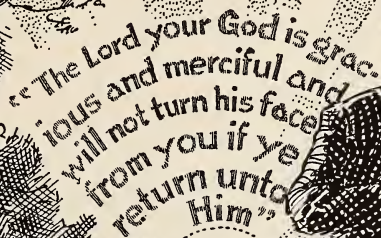 “The Lord your God is grac-
ious and merciful and
will not turn his face
from you if ye
return unto
Him”